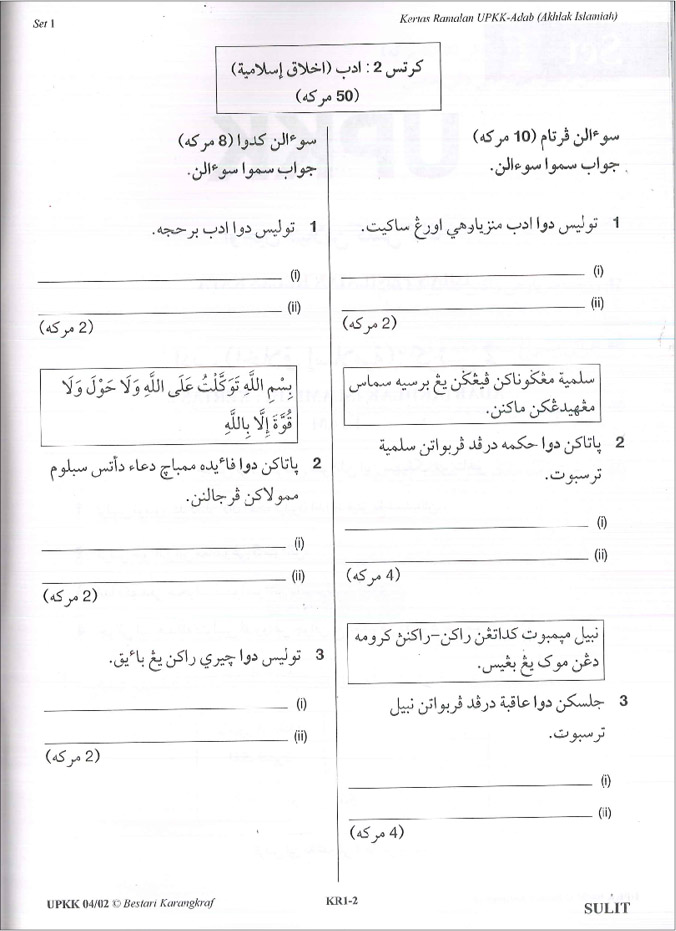 Set 1
Kertas Ramalan UPKK-Adab (Akhlak Islamiah)
كرتس 2 : ادب (اخلاق إسلامية)
(50 مركه)
سوءالن ڤرتام (10 مركه)
جواب سموا سوءالن.
1 توليس دوا ادب منزيارهي اورڠ ساكيت.
(i)
(ii)
(2 مركه)
سلمية مڠݢوناكن ڤيڠݢن يڠ برسيه سماس
مڠهيدڠكن ماكنن.
2 ڽاتاكن دوا حكمه درڤد ڤربواتن سلمية
ترسبوت.
(i)
(ii)
(4 مركه)
نبيل مڽمبوت كداتڠن راكن-راكنڽ كرومه
دڠن موک يڠ بڠيس.
3 جلسكن دوا عاقبة درڤد ڤربواتن نبيل
ترسبوت.
(i)
(ii)
(4 مركه)
سوءالن كدوا (8 مركه)
جواب سموا سوءالن.
1 توليس دوا ادب برحجه.
(i)
(ii)
(2 مركه)
بِسْمِ اللَّهِ تَوَكَّلْتُ عَلَى اللَّهِ وَلَا حَوْلَ وَلَا
قُوَّةَ إِلَّا بِاللَّهِ
2 ڽاتاكن دوا فائيده ممباچ دعاء دأتس سبلوم
ممولاكن ڤرجالنن.
(i)
(ii)
(2 مركه)
3 توليس دوا چيري راكن يڠ بائيق.
(i)
(ii)
(2 مركه)
UPKK 04/02 © Bestari Karangkraf
KR1-2
SULIT